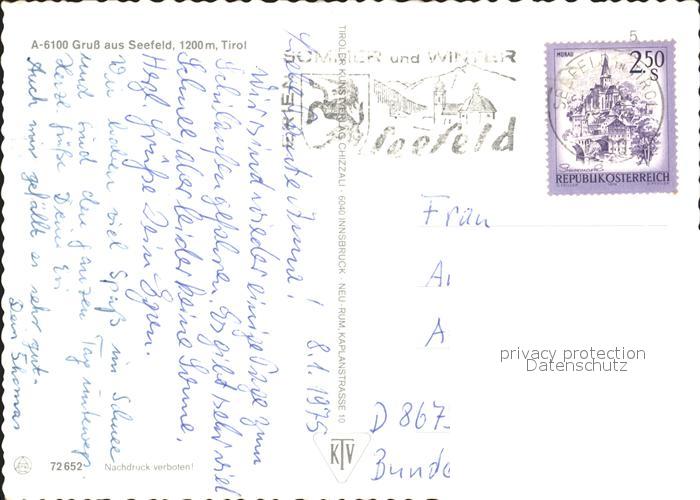 A-6100 Gruß aus Seefeld, 1200 m, Tirol
SOMMER und WINTER
Seefeld
MURAU
2.50
S
REPUBLIK ÖSTERREICH
5
TIROLER KUNSTVERLAG CHIZZALI · 6040 INNSBRUCK NEU-RUM, KAPLANSTRASSE 10
KTV
8.1.1975
Liebe Tante Anna!
Wir sind wieder einige Tage zum
Schilaufen gefahren. Es gibt sehr viel
Schnee, aber leider keine Sonne.
Hzgl. Grüße Dein Egon.
Wir haben viel Spaß im Schnee
und sind den ganzen Tag unterwegs.
Deine Evi
Auch mir gefällt es sehr gut.
Dein Thomas
Frau
A
A
D 867
Bunde
privacy protection
Datenschutz
72652
Nachdruck verboten!